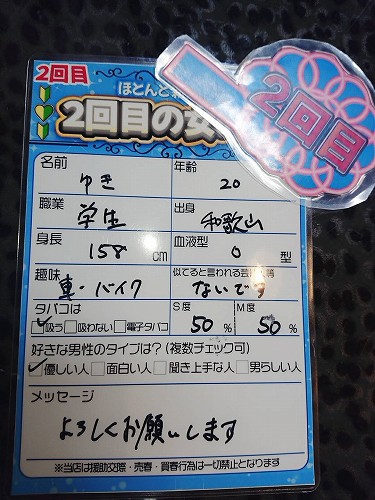 2回目
ほとんど
2回目の女
2回目
名前 ゆき
年齢 20
職業 学生
出身 和歌山
身長 158 cm
血液型 O 型
趣味 車・バイク
似てると言われる芸能人等 ないです
タバコは S度 M度
✓吸う □吸わない □電子タバコ 50 % 50 %
好きな男性のタイプは?(複数チェック可)
✓優しい人 □面白い人 □聞き上手な人 □男らしい人
メッセージ
よろしくお願いします
※当店は援助交際・売春・買春行為は一切禁止となります